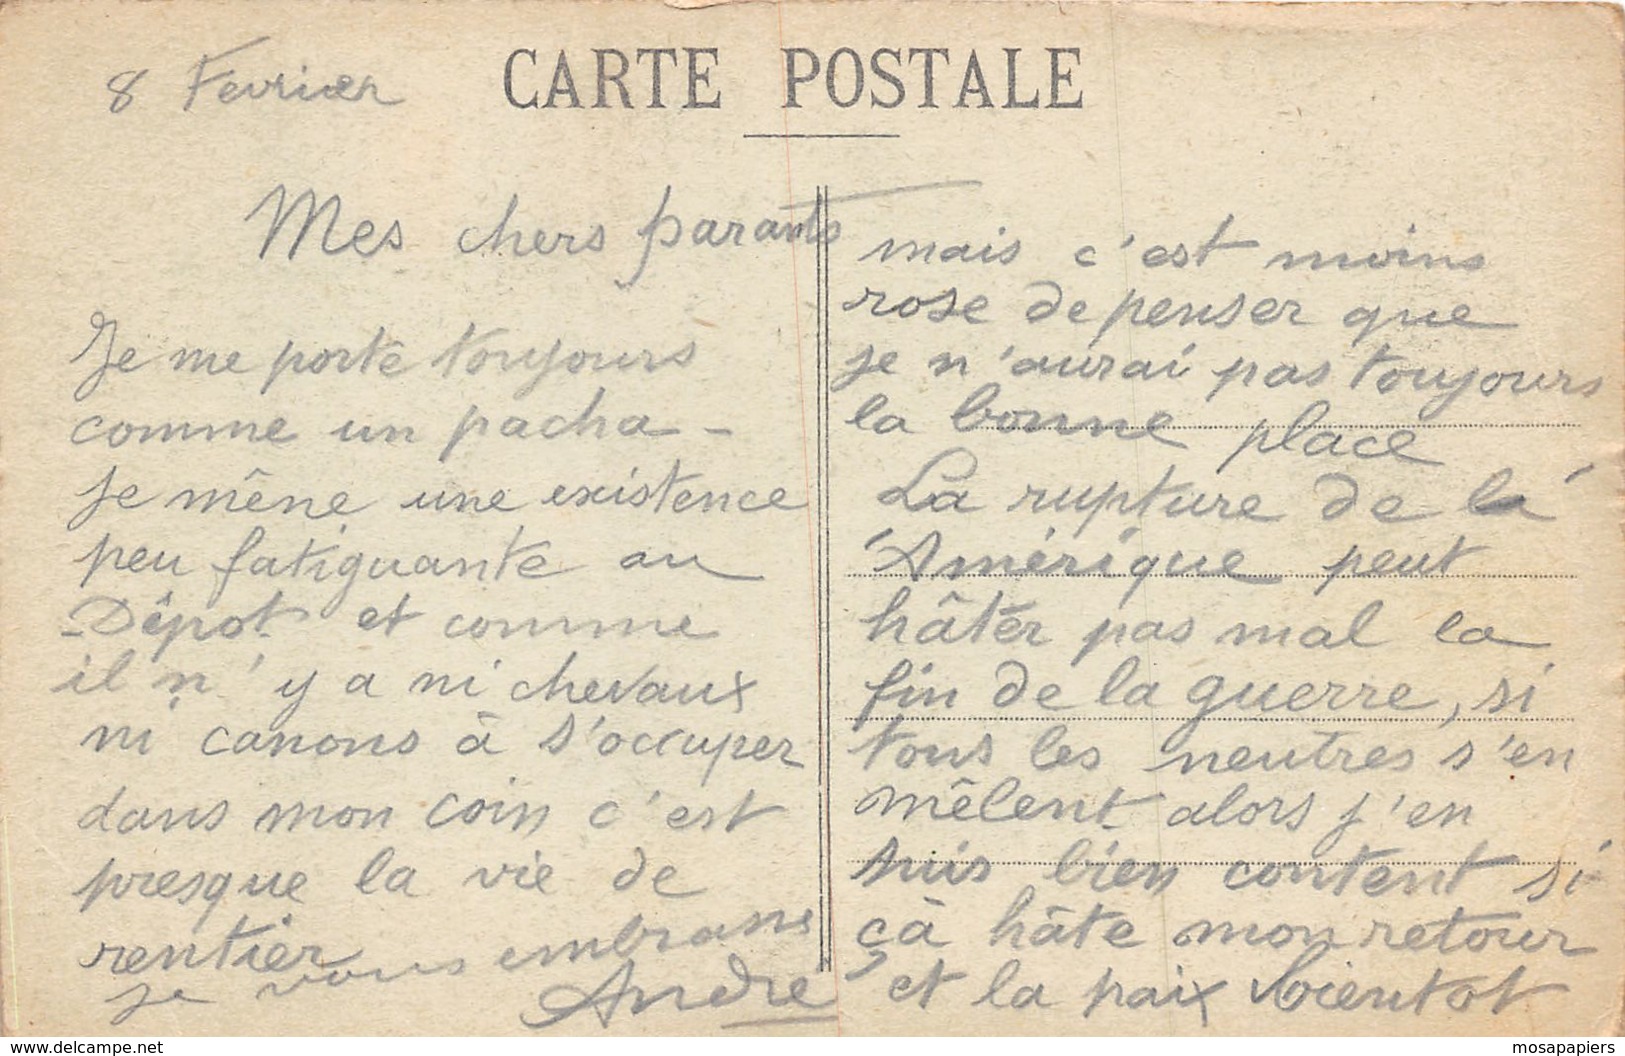 8 Fevrier
CARTE POSTALE
Mes chers parants
Je me porte toujours
comme un pacha -
je mêne une existence
peu fatiguante au
Dêpot et comme
il n'y a ni chevaux
ni canons à s'occuper
dans mon coin c'est
presque la vie de
rentier
je vous embrasse
André
mais c'est moins
rose de penser que
je n'aurai pas toujours
la bonne place
La rupture de l
'Amérique peut
hâter pas mal la
fin de la guerre, si
tous les neutres s'en
mêlent alors j'en
suis bien content si
çà hâte mon retour
et la paix bientot
delcampe.net
mosapapiers